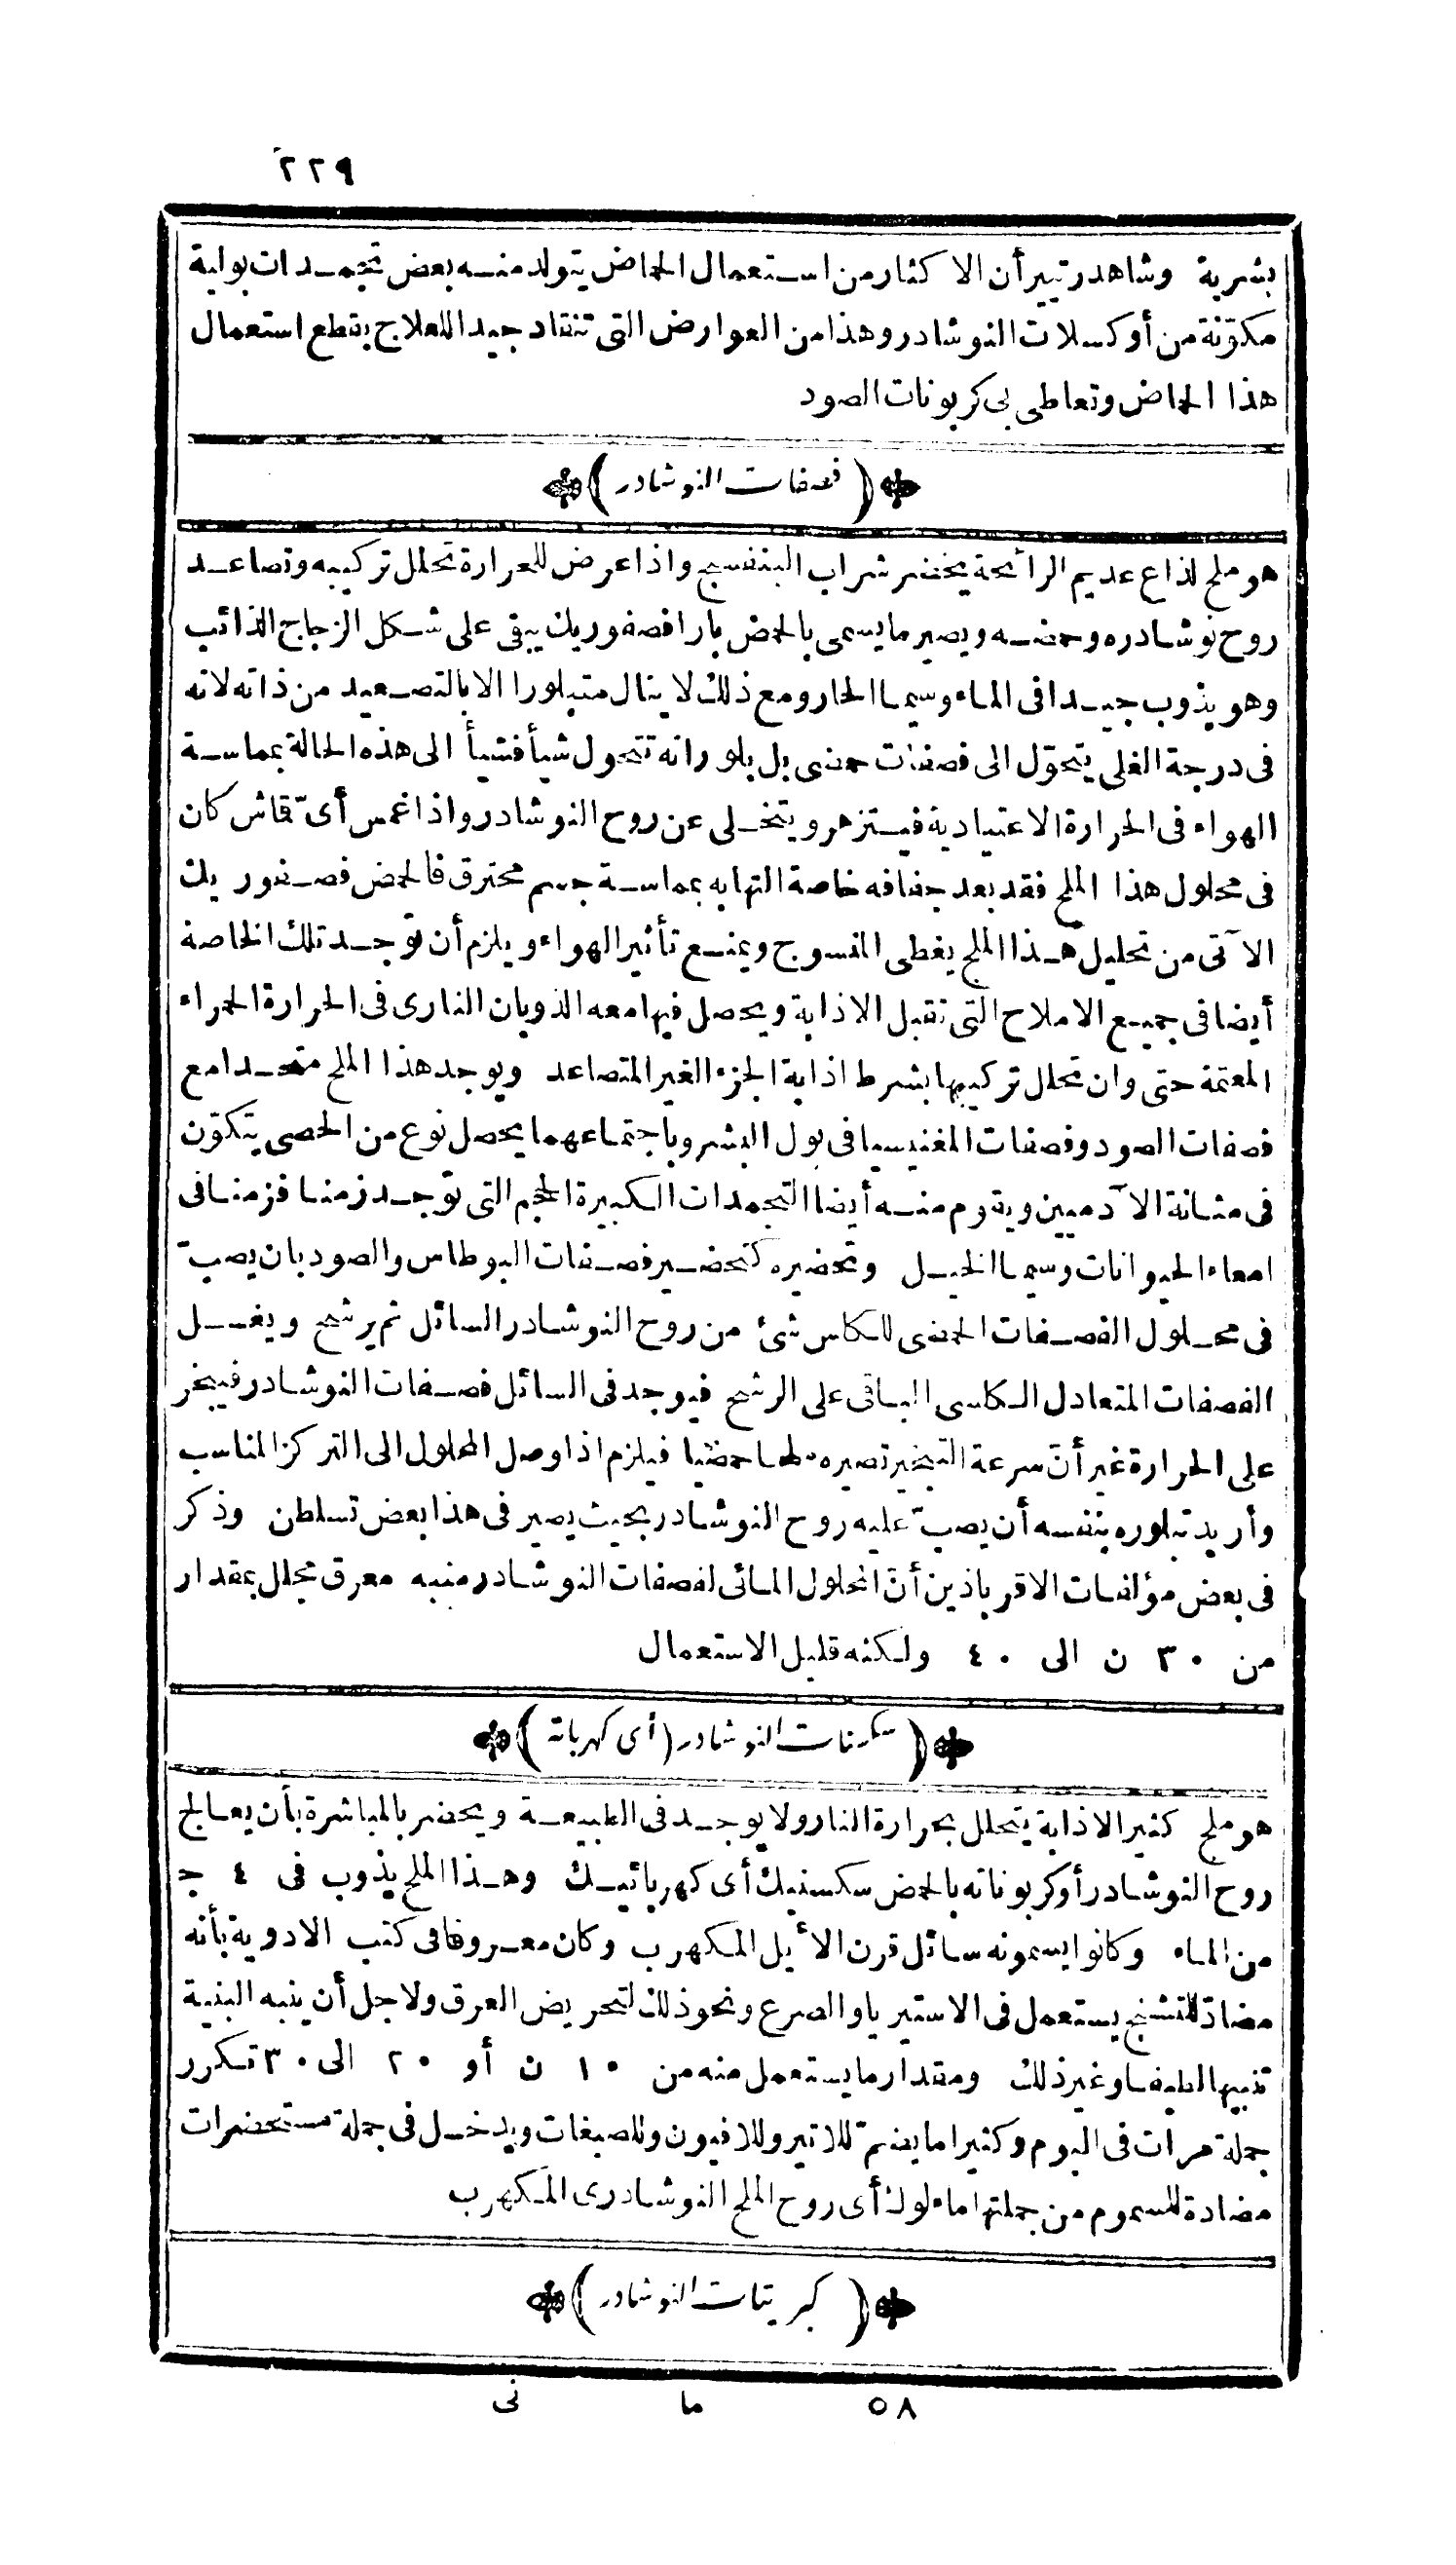 ٢٢٩
بشرية وشاهد رتيير أن الاكثار من استعمال الحماض يتولد منه بعض تجمدات بولية
مكوّنة من أوكسلات النوشادر وهذا من العوارض التى تنقاد جيدا للعلاج بقطع استعمال
هذا الحماض وتعاطى بى كربونات الصود
(فصفات النوشادر)
هو ملح لذاع عديم الرائحة يخضر شراب البنفسج واذا عرض للحرارة تحلل تركيبه وتصاعد
روح نوشادره وحمضه ويصير ما يسمى بالحمض بارافصفوريك يبقى على شكل الزجاج الذائب
وهو يذوب جيدا فى الماء وسيما الحار ومع ذلك لا ينال متبلورا الا بالتصعيد من ذاته لانه
فى درجة الغلى يتحوّل الى فصفات حمضى بل بلوراته تتحول شيأ فشيأ الى هذه الحالة بمماسة
الهواء فى الحرارة الاعتيادية فيتزهر ويتخلى عن روح النوشادر واذا غمس أىّ قماش كان
فى محلول هذا الملح فقد بعد جفافه خاصة التهابه بمماسة جسم محترق فالحمض فصفوريك
الآتى من تحليل هذا الملح يغطى المنسوج ويمنع تأثير الهواء ويلزم أن توجد تلك الخاصة
أيضا فى جميع الاملاح التى تقبل الاذابة ويحصل فيها معه الذوبان النارى فى الحرارة الحمراء
المعتمة حتى وان تحلل تركيبها بشرط اذابة الجزء الغير المتصاعد ويوجد هذا الملح متحدا مع
فصفات الصود وفصفات المغنيسيا فى بول البشر وباجتماعهما يحصل نوع من الحصى يتكوّن
فى مثانة الآدميين ويقوم منه أيضا التجمدات الكبيرة الحجم التى توجد زمنا فزمنا فى
امعاء الحيوانات وسيما الخيل وتحضيره كتحضير فصفات البوطاس والصود بان يصبّ
فى محلول الفصفات الحمضى للكلس شئ من روح النوشادر السائل ثم يرشح ويغسل
الفصفات المتعادل الكلسى الباقى على الرشح فيوجد فى السائل فصفات النوشادر فيبخر
على الحرارة غير أنّ سرعة التبخير تصيره ملحا حمضيا فيلزم اذا وصل المحلول الى التركز المناسب
وأريد تبلوره بنفسه أن يصبّ عليه روح النوشادر بحيث يصير فى هذا بعض تسلطن وذكر
فى بعض مؤلفات الاقرباذين أنّ المحلول المائى لفصفات النوشادر منبه معرق محلل بمقدار
من ٣٠ ن الى ٤٠ ولكنه قليل الاستعمال
(سكسنات النوشادر (أى كهرباته)
هو ملح كثير الاذابة يتحلل بحرارة النار ولا يوجد فى الطبيعة ويحضر بالمباشرة بأن يعالج
روح النوشادر أو كربوناته بالحمض سكسنيك أى كهربائيك وهذا الملح يذوب فى ٤ ج
من الماء وكانوا يسمونه سائل قرن الأيل المكهرب وكان معروفا فى كتب الادوية بأنه
مضادّ للتشنج يستعمل فى الاستيريا والصرع ونحو ذلك لتحريض العرق ولاجل أن ينبه البنية
تنبيها لطيفا وغير ذلك ومقدار ما يستعمل منه من ١٠ ن أو ٢٠ الى ٣٠ تكرر
جملة مرات فى اليوم وكثيرا ما يضمّ للاتير وللافيون وللصبغات ويدخل فى جملة مستحضرات
مضادة للسموم من جملتها ماء لوك أى روح الملح النوشادرى المكهرب
(كبريتات النوشادر)
٥٨ ما نى